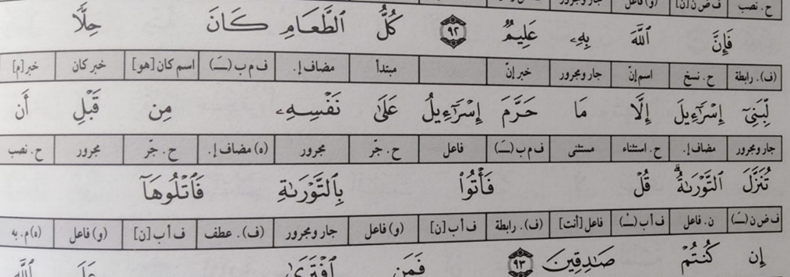 ح. نصب ف ض ن [ن] (و) فاعل جار ومجرور
فَإِنَّ ٱللَّهَ بِهِۦ عَلِيمٌ ٩٢ كُلُّ ٱلطَّعَامِ كَانَ حِلًّا
(ف). رابطة ح. نسخ اسم إنّ جار ومجرور خبر إنّ مبتدأ مضاف إ. ف م ب (ـَ) اسم كان [هو] خبر كان خبر [م]
لِّبَنِىٓ إِسْرَٰٓءِيلَ إِلَّا مَا حَرَّمَ إِسْرَٰٓءِيلُ عَلَىٰ نَفْسِهِۦ مِن قَبْلِ أَن
جار ومجرور مضاف إ. ح. استثناء مستثنى ف م ب (ـَ) فاعل ح. جرّ مجرور (ه) مضاف إ. ح. جرّ مجرور ح. نصب
تُنَزَّلَ ٱلتَّوْرَىٰةُ ۗ قُلْ فَأْتُوا۟ بِٱلتَّوْرَىٰةِ فَٱتْلُوهَآ
ف ض ن (ـَ) ن. فاعل ف أ ب (ـْ) فاعل [أنت] (ف). رابطة ف أ ب [ن] (و) فاعل جار ومجرور (ف). عطف ف أ ب [ن] (و) فاعل (ه) م. به
إِن كُنتُمْ صَٰدِقِينَ ٩٣ فَمَنِ ٱفْتَرَىٰ عَلَى ٱللَّهِ